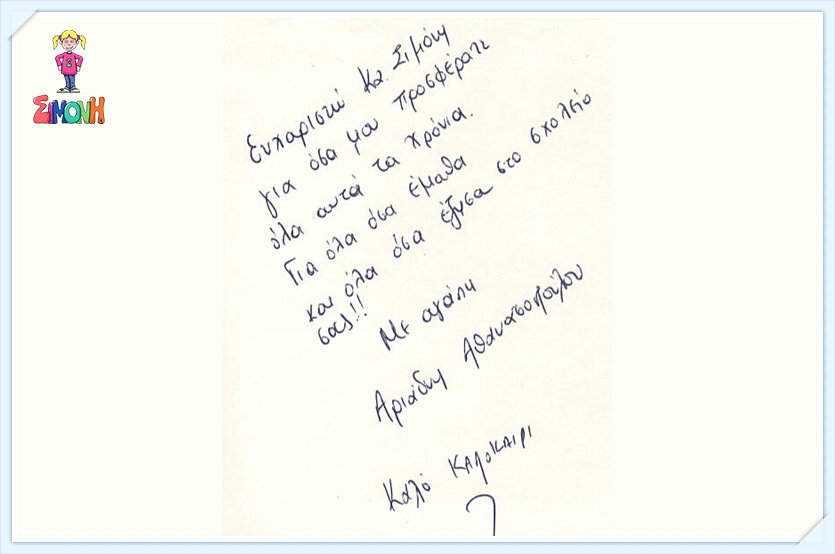 ΣΙΜΟΝΗ
Ευχαριστώ Κα. Σιμόνη
για όσα μου προσφέρατε
όλα αυτά τα χρόνια.
Για όλα όσα έμαθα
και όλα όσα έζησα στο σχολείο
σας!!
Με αγάπη
Αριάδνη Αθανασοπούλου
Καλό ΚΑλοΚΑΙΡΙ